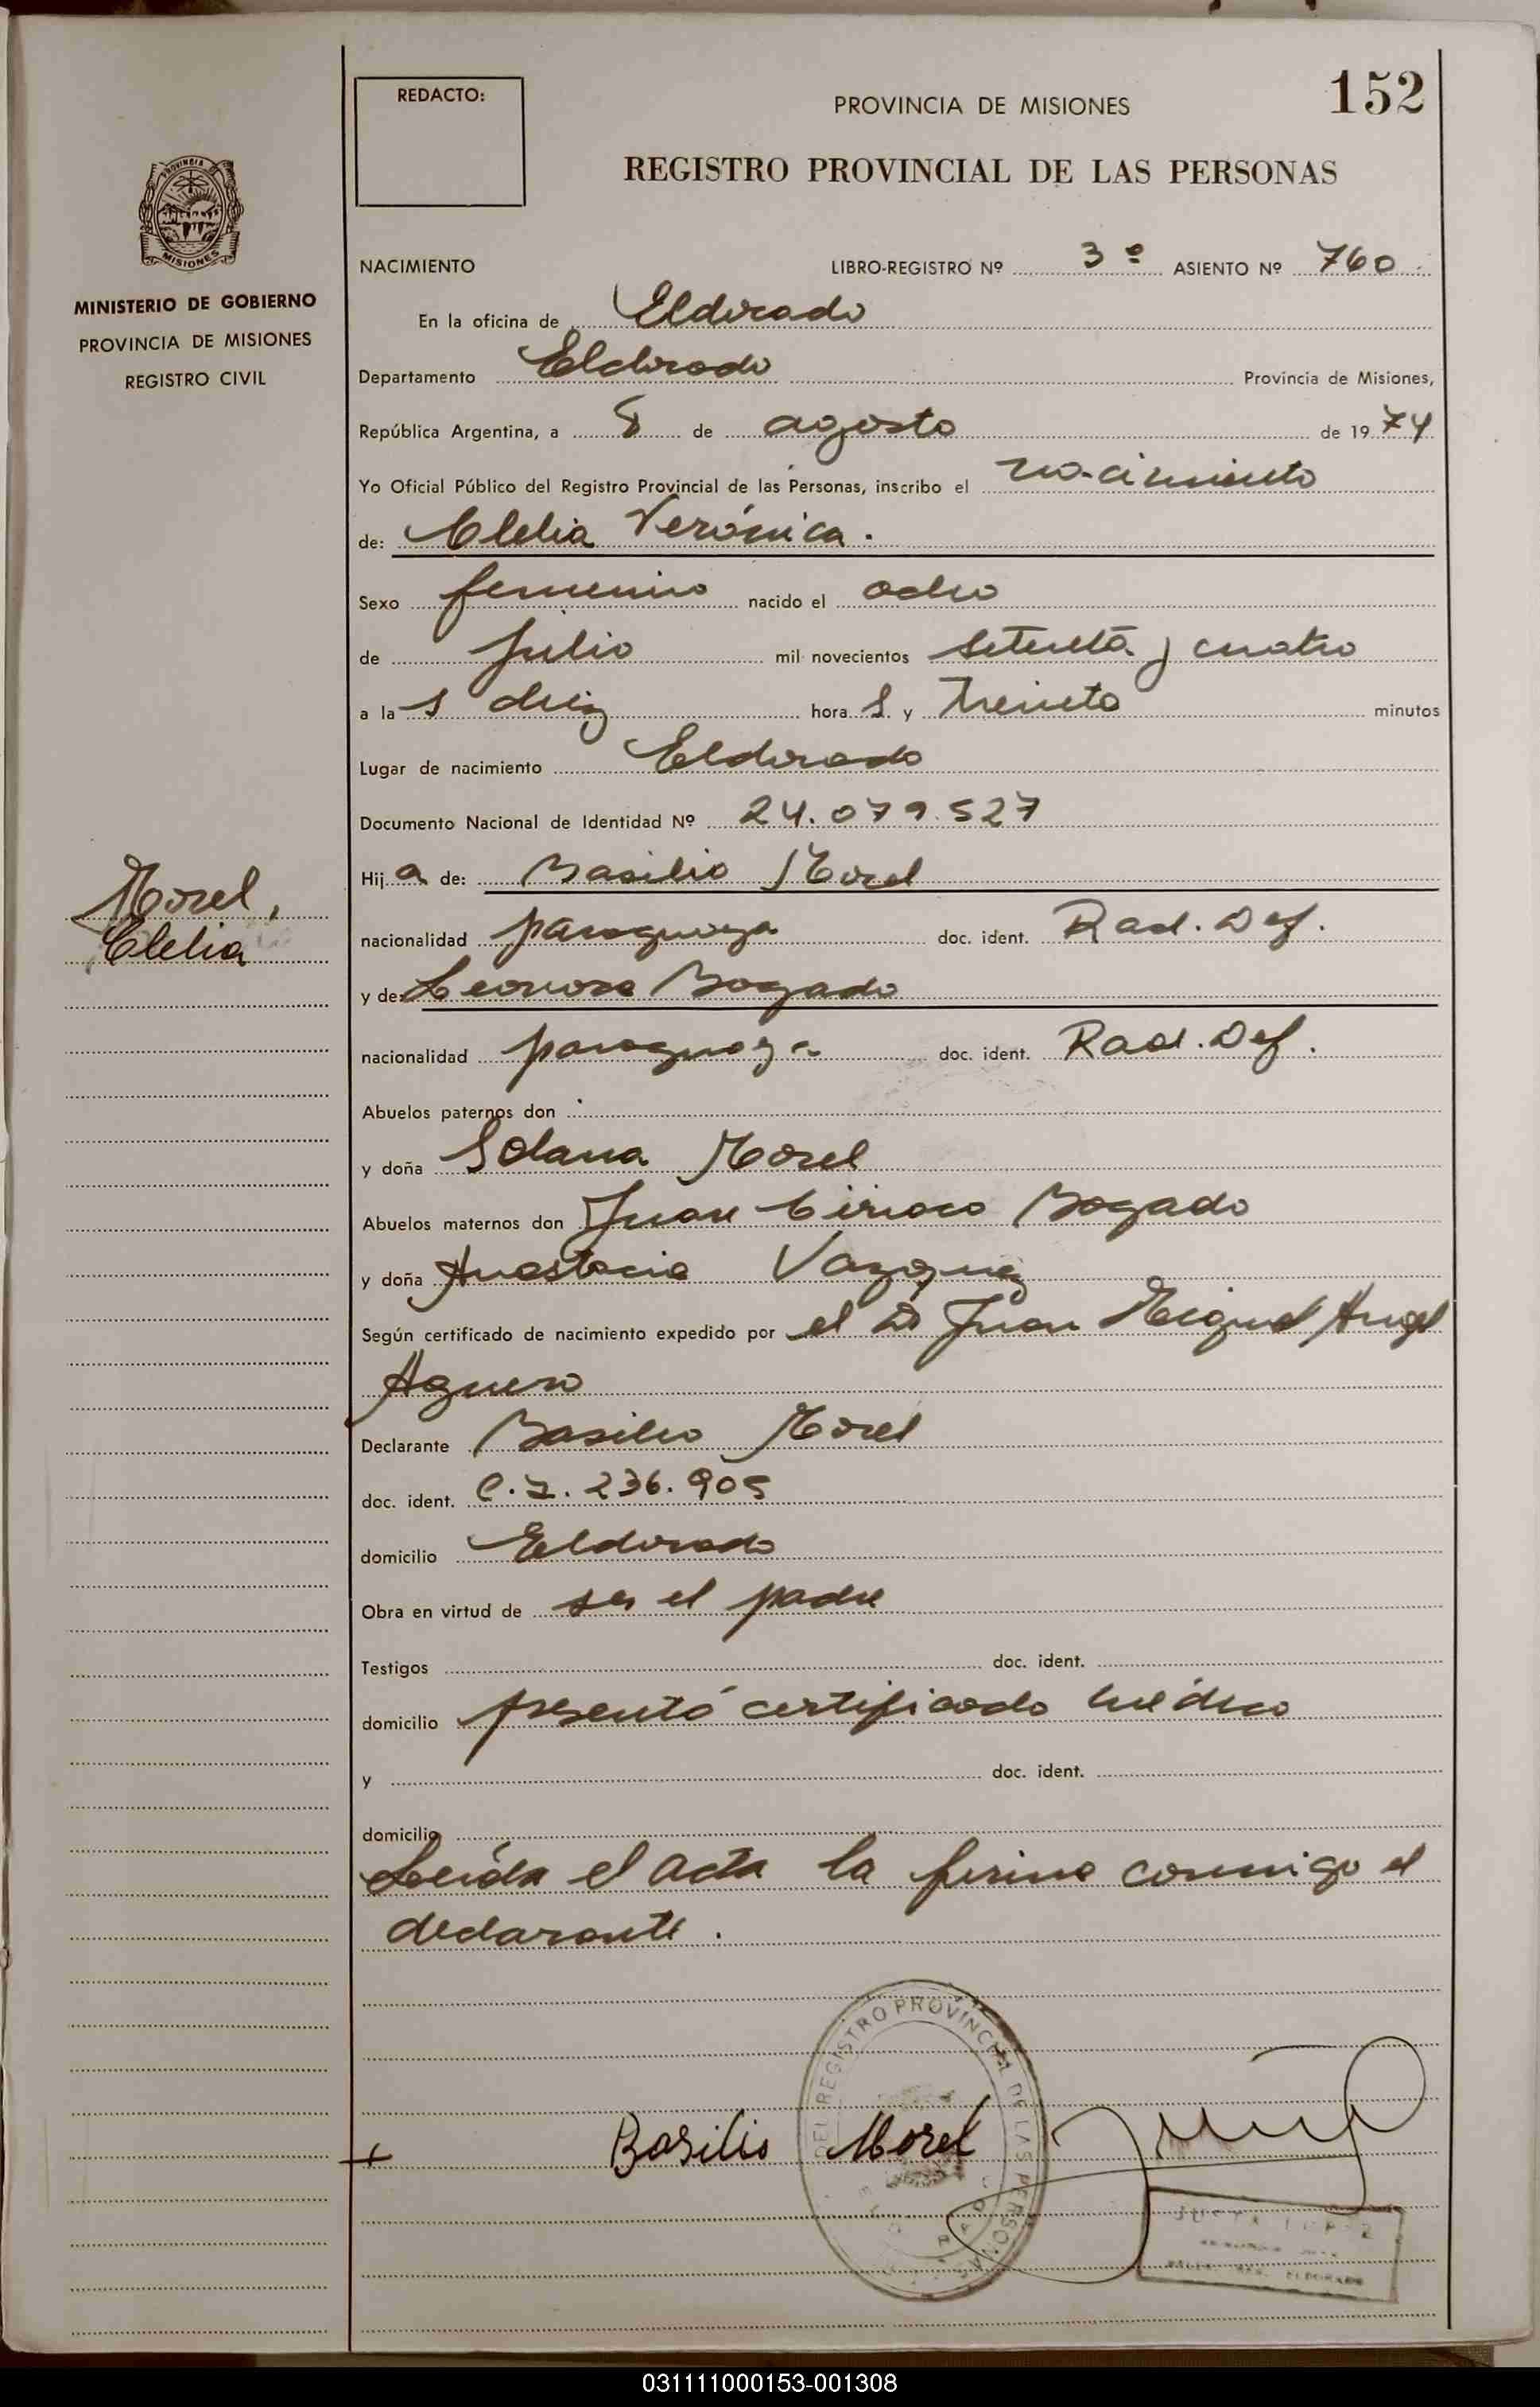 REDACTO:
PROVINCIA DE MISIONES
152
REGISTRO PROVINCIAL DE LAS PERSONAS
PROVINCIA
MISIONES
MINISTERIO DE GOBIERNO
PROVINCIA DE MISIONES
REGISTRO CIVIL
NACIMIENTO LIBRO-REGISTRO Nº 3º ASIENTO Nº 760
En la oficina de Eldorado
Departamento Eldorado Provincia de Misiones,
República Argentina, a 8 de agosto de 1974
Yo Oficial Público del Registro Provincial de las Personas, inscribo el nacimiento
de: Clelia Verónica.
Sexo femenino nacido el ocho
de julio mil novecientos setenta y cuatro
a las diez horas y treinta minutos
Lugar de nacimiento Eldorado
Documento Nacional de Identidad Nº 24.079.527
Morel,
Clelia
Hija de: Basilio Morel
nacionalidad paraguaya doc. ident. Rad. Def.
y de: Leonora Bogado
nacionalidad paraguaya doc. ident. Rad. Def.
Abuelos paternos don
y doña Solana Morel
Abuelos maternos don Juan Ciriaco Bogado
y doña Anastacia Vazquez
Según certificado de nacimiento expedido por el Dr Juan Miguel Angel
Aguero
Declarante Basilio Morel
doc. ident. C.I. 236.905
domicilio Eldorado
Obra en virtud de ser el padre
Testigos doc. ident.
domicilio presentó certificado médico
y doc. ident.
domicilio
Leída el acta la firma conmigo el
declarante.
DEL REGISTRO PROVINCIAL DE LAS PERSONAS
Basilio Morel
ELDORADO
031111000153-001308